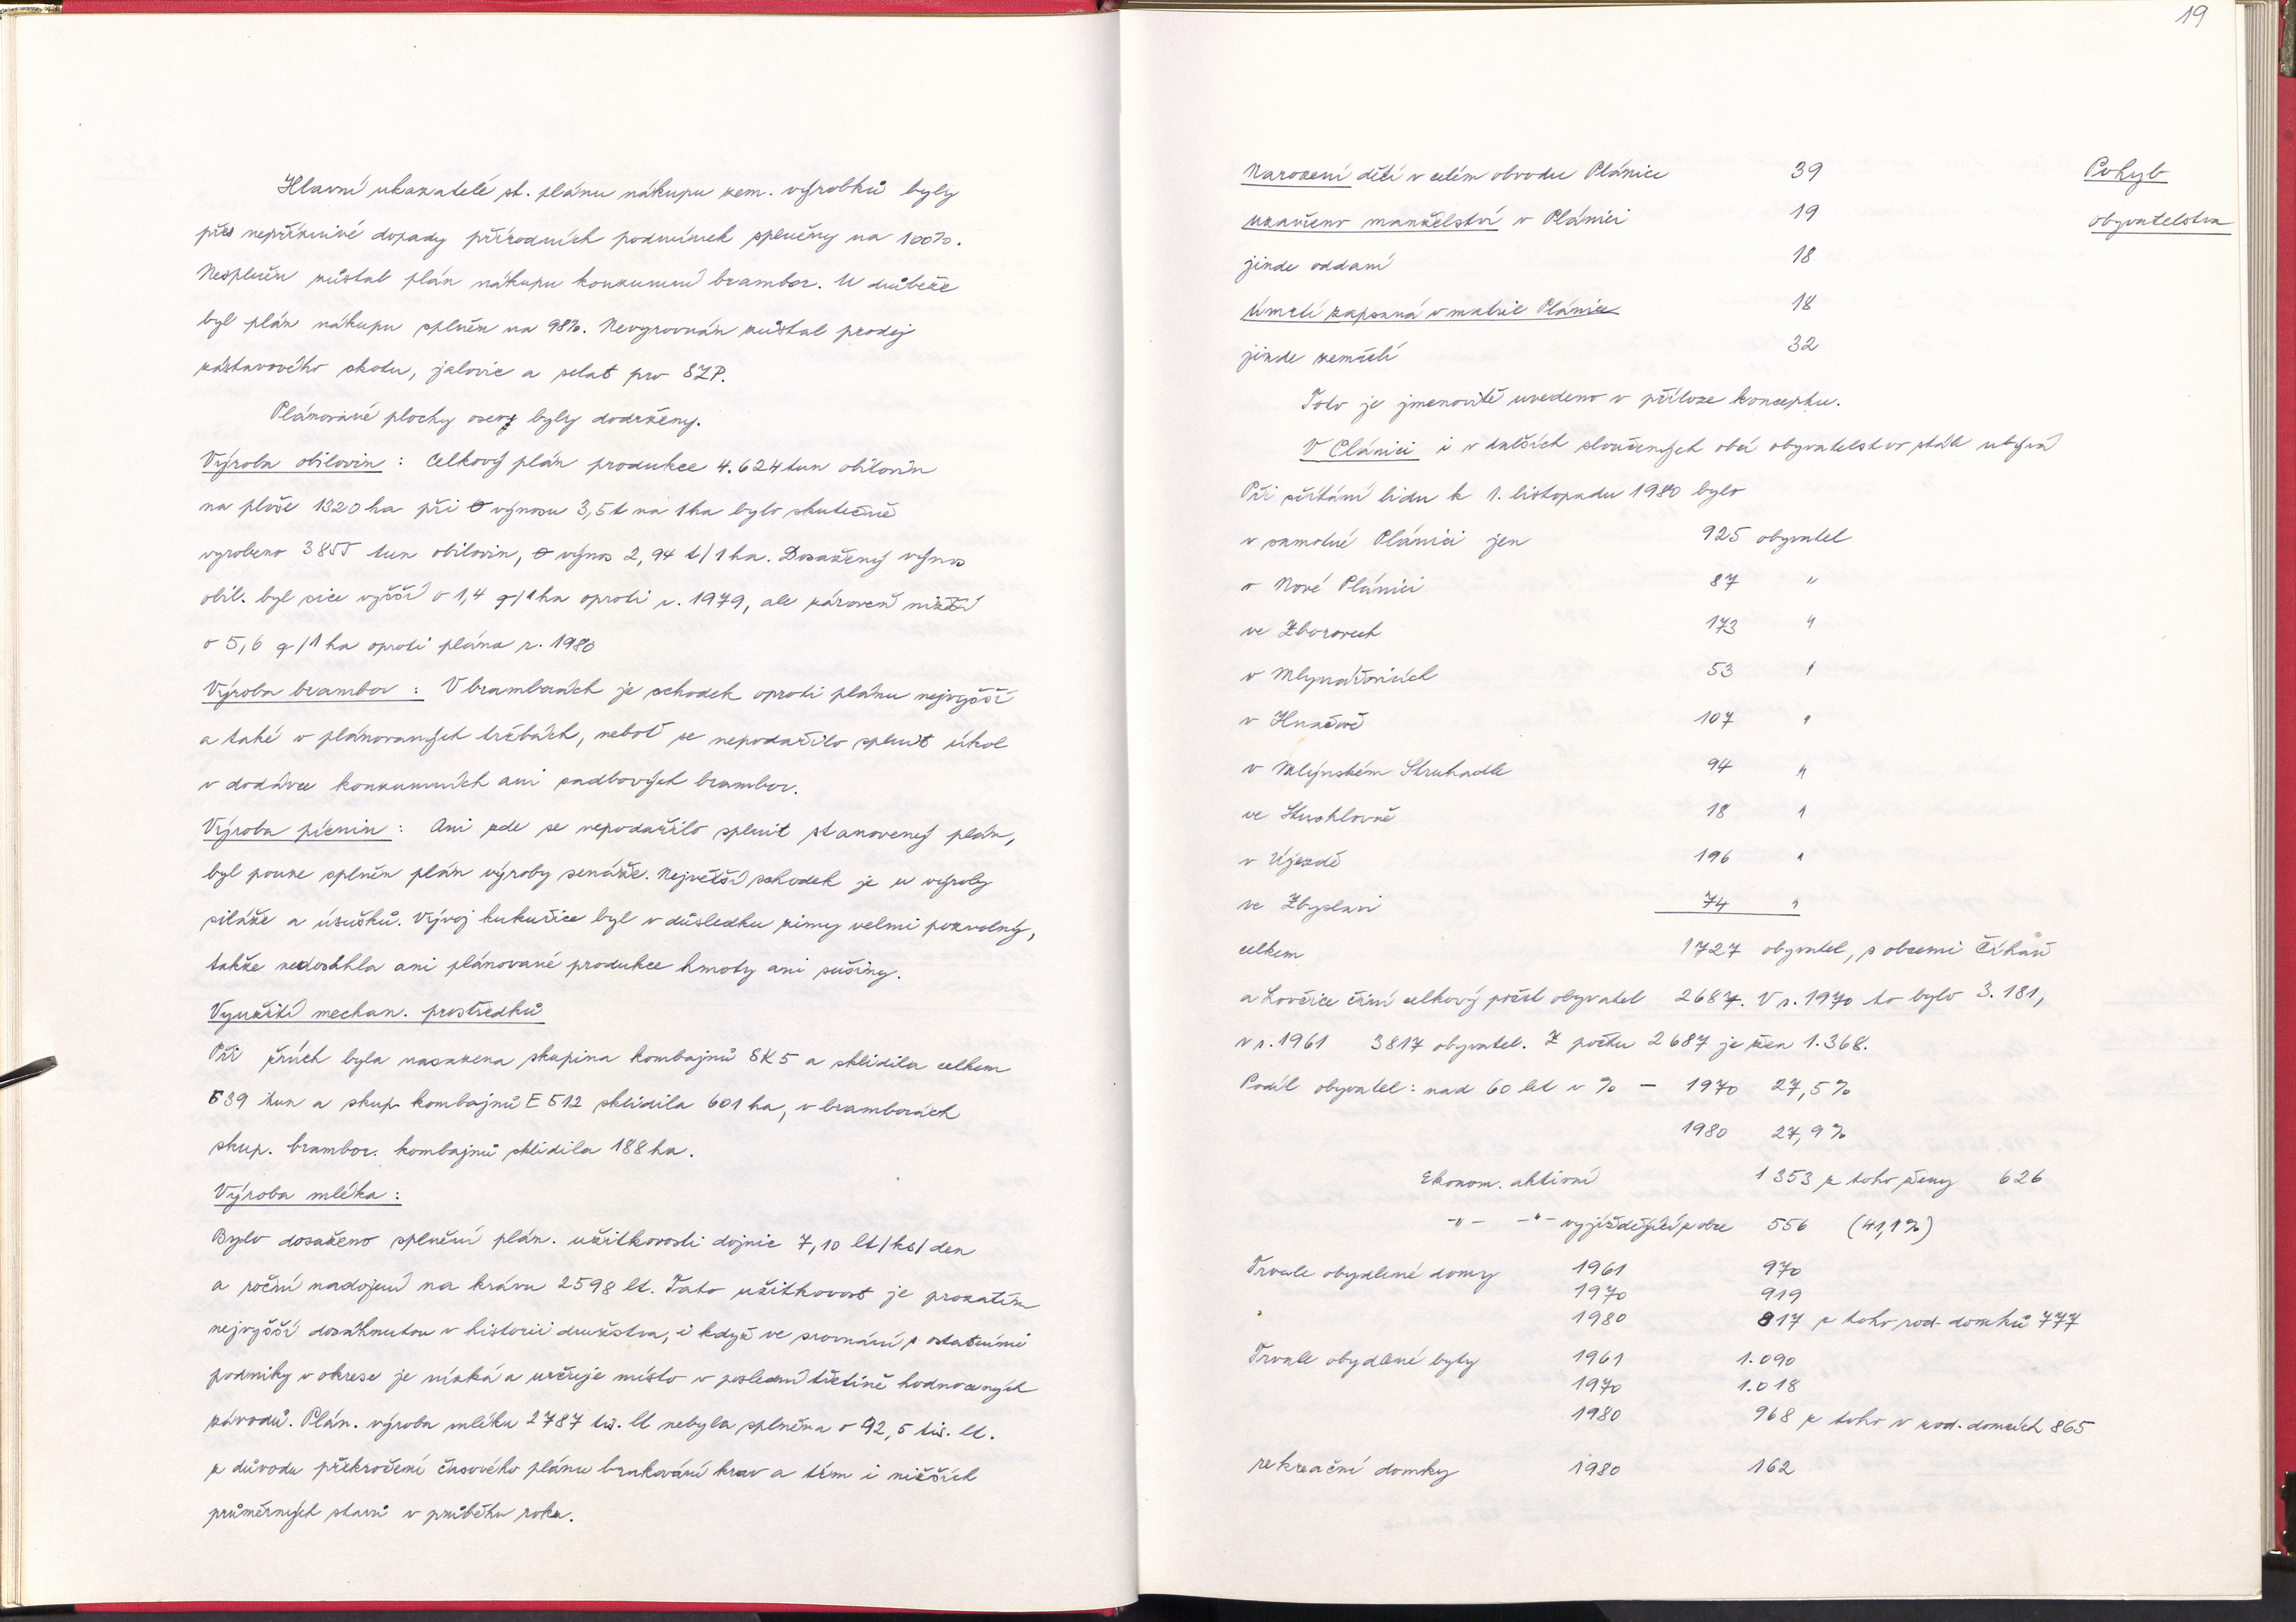 Hlavní ukazatelé st. plánu nákupu zem. výrobků byly
přes nepříznivé dopady přírodních podmínek splněny na 100%.
Nesplněn zůstal plán nákupu konzumní brambor. U drůbeže
byl plán nákupu splněn na 98%. Nevyrovnán zůstal prodej
zástavového skotu, jalovic a selat pro SZP.
Plánované plochy osevy byly dodrženy.
Výroba obilovin : Celkový plán produkce 4.624 tun obilovin
na ploše 1320 ha při ø výnosu 3,5 t na 1 ha bylo skutečně
vyrobeno 3855 tun obilovin, ø výnos 2,94 t/1 ha. Dosažený výnos
obil. byl sice vyšší o 1,4 q/1 ha oproti r. 1979, ale zároveň nižší
o 5,6 q/1 ha oproti plánu r. 1980
Výroba brambor : V bramborách je schodek oproti plánu nejvyšší
a také v plánovaných tržbách, neboť se nepodařilo splnit úkol
v dodávce konzumních ani sadbových brambor.
Výroba pícnin : Ani zde se nepodařilo splnit stanovený plán,
byl pouze splněn plán výroby senáže. Největší schodek je u výroby
siláže a úsušků. Vývoj kukuřice byl v důsledku zimy velmi pozvolný,
takže nedosáhla ani plánované produkce hmoty ani sušiny.
Využití mechan. prostředků
Při žních byla nasazena skupina kombajnů SK5 a sklidila celkem
539 tun a skup. kombajnů E 512 sklidila 601 ha, v bramborách
skup. brambor. kombajnů sklidila 188 ha.
Výroba mléka :
Bylo dosaženo splnění plán. užitkovosti dojnic 7,10 lt/ks/den
a roční nadojení na krávu 2598 lt. Tato užitkovost je prozatím
nejvyšší dosáhnutou v historii družstva, i když ve srovnání s ostatními
podniky v okrese je nízká a určuje místo v poslední třetině hodnocených
závodů. Plán. výroba mléka 2787 tis. lt nebyla splněna o 92,5 tis. lt.
z důvodu překročení časového plánu brakování krav a tím i nižších
průměrných stavů v průběhu roku.
19
Pohyb
obyvatelstva
Narození dětí v celém obvodu Plánice 39
uzavřeno manželství v Plánici 19
jinde oddaní 18
Úmrtí zapsaná v matrice Plánice 18
jinde zemřelí 32
Toto je jmenovitě uvedeno v příloze konceptu.
V Plánici i v dalších sloučených obcí obyvatelstvo stále ubývá
Při sčítání lidu k 1. listopadu 1980 bylo
v samotné Plánici jen 925 obyvatel
v Nové Plánici 87 "
ve Zborovech 173 "
v Mlynařovicích 53 "
v Hnačově 107 "
v Mlýnském Struhadle 94 "
ve Štipoklasech 18 "
v Újezdě 196 "
ve Zbyslavi 74 "
celkem 1727 obyvatel, s obcemi Číhaň
a Lovčice činí celkový počet obyvatel 2687. V r. 1970 to bylo 3.181,
v r. 1961 3817 obyvatel. Z počtu 2687 je žen 1.368.
Podíl obyvatel: nad 60 let v % – 1970 27,5 %
1980 27,9 %
Ekonom. aktivní 1353 z toho ženy 626
-"- -"- vyjíždějící z obce 556 (41,1%)
Trvale obydlené domy 1961 970
1970 919
1980 817 z toho rod. domků 777
Trvale obydlené byty 1961 1.090
1970 1.018
1980 968 z toho v rod. domcích 865
rekreační domky 1980 162